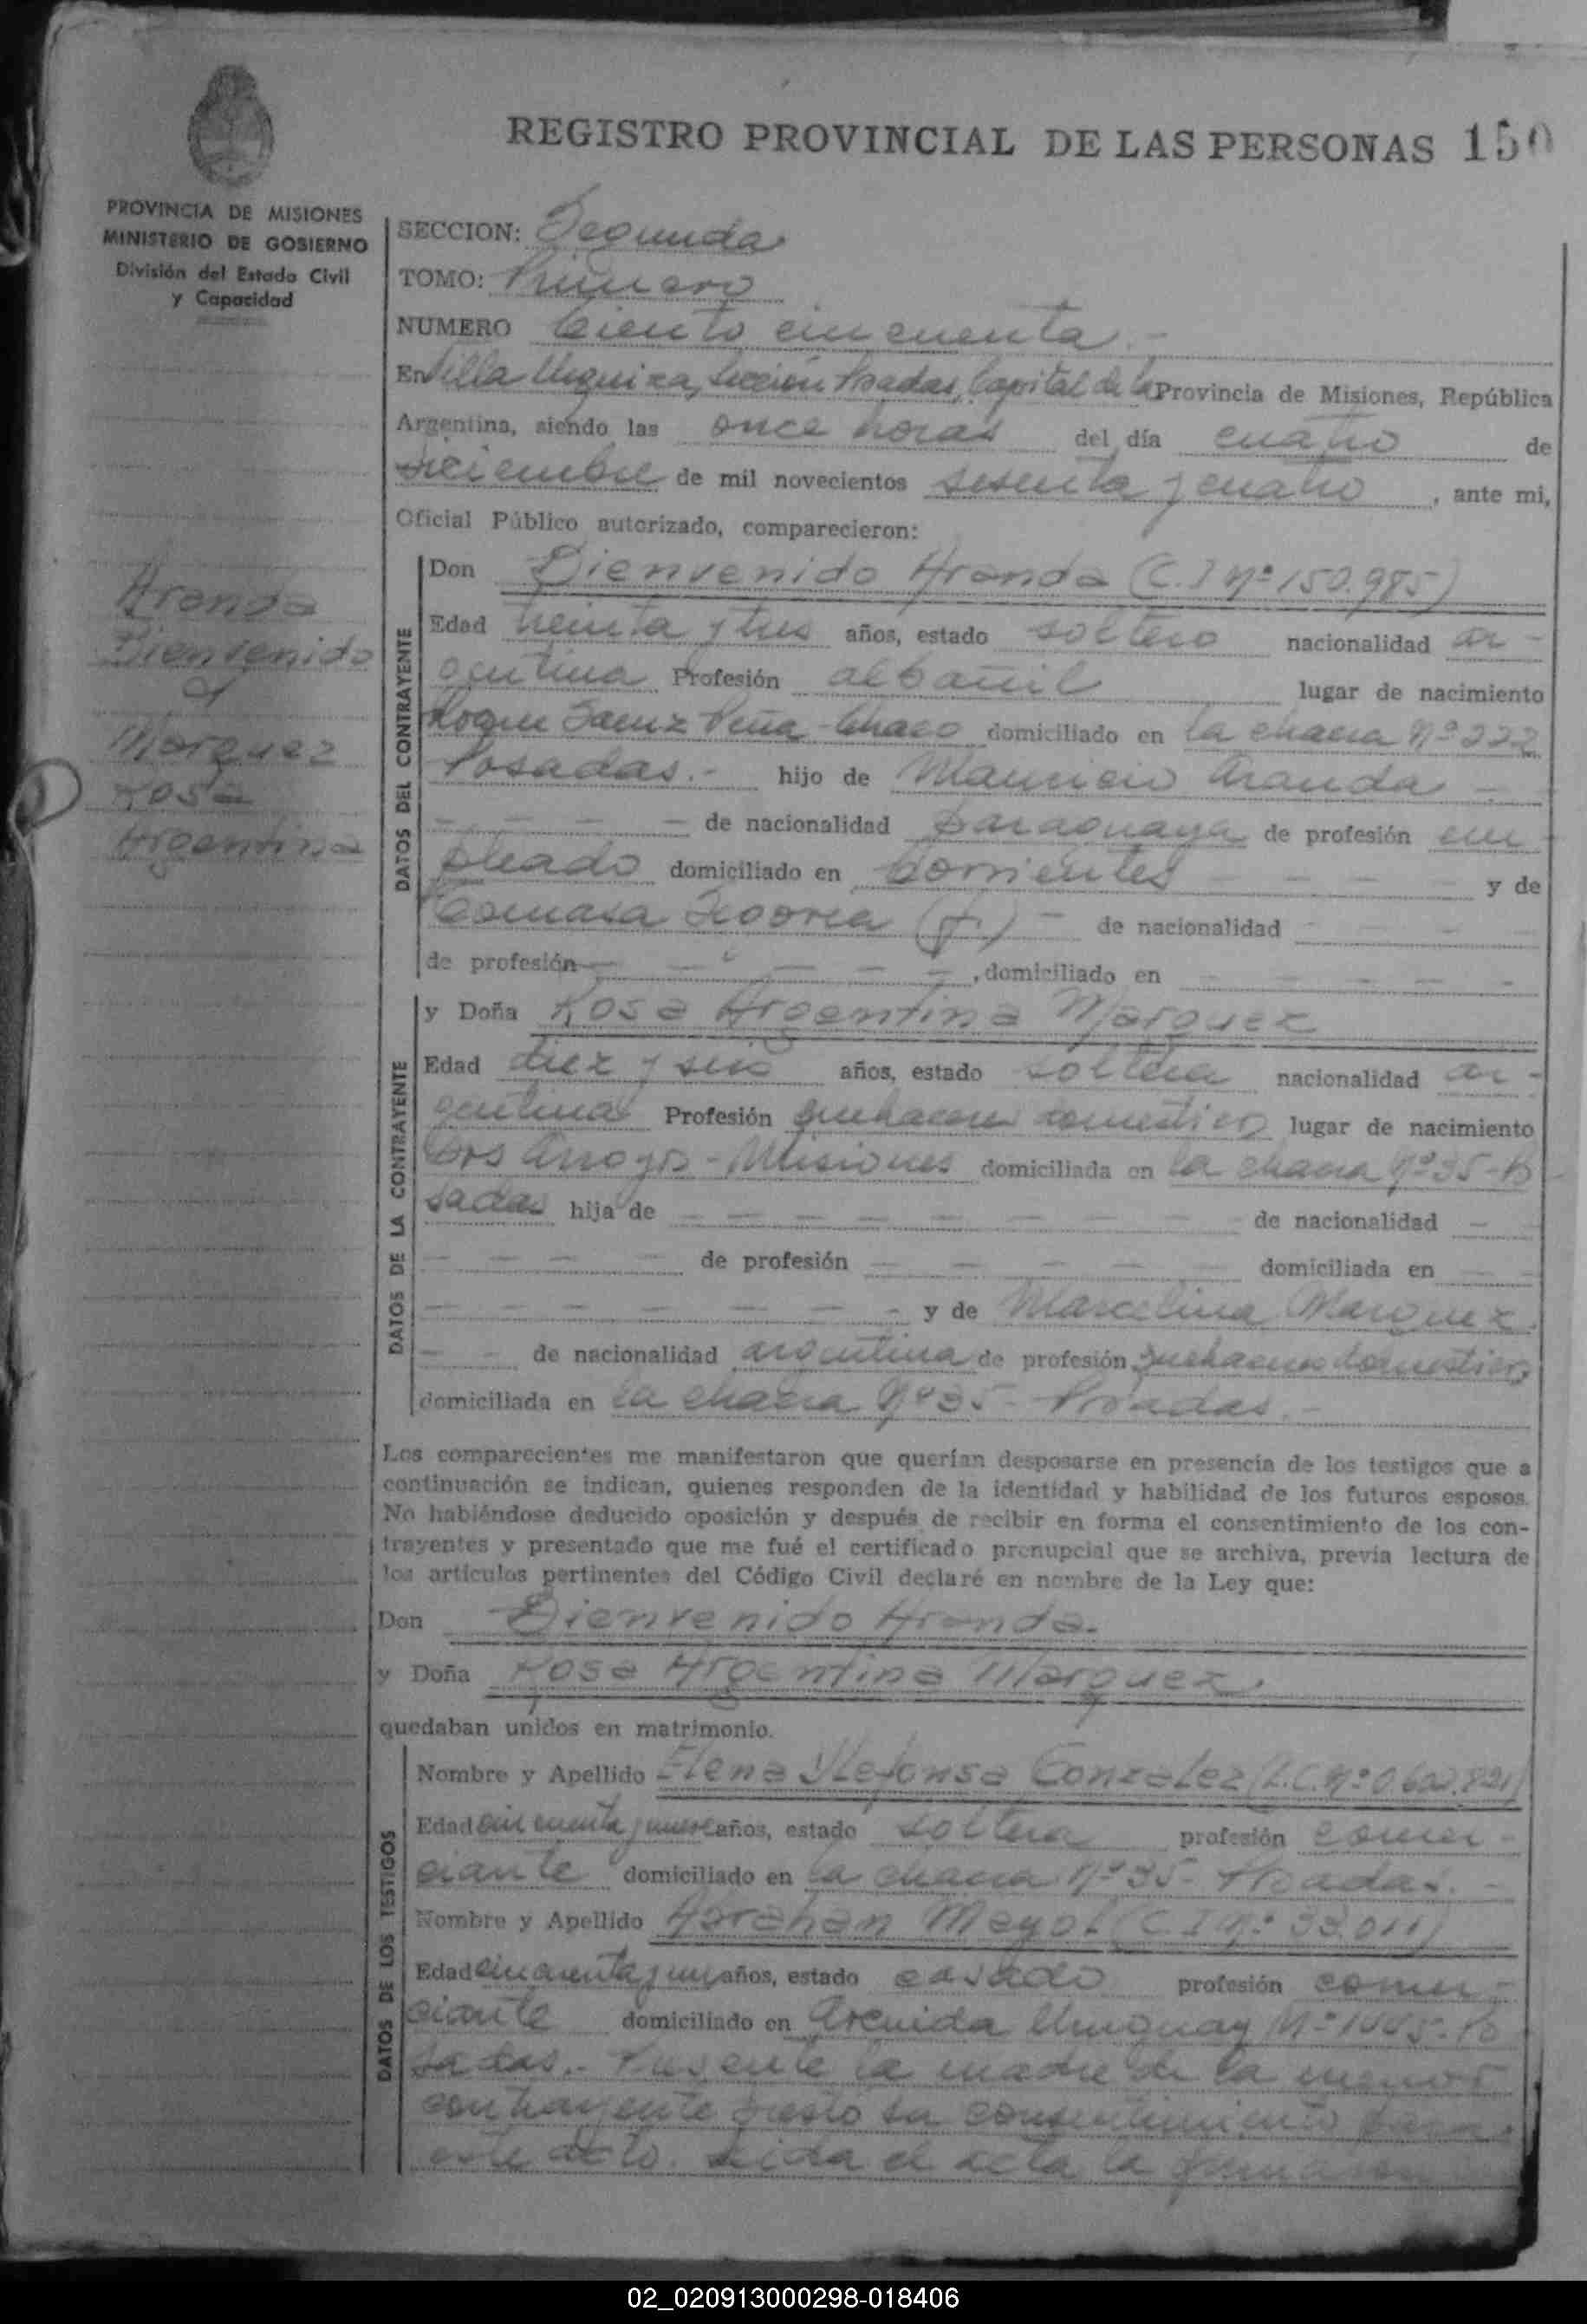 REGISTRO PROVINCIAL DE LAS PERSONAS 150
PROVINCIA DE MISIONES
MINISTERIO DE GOBIERNO
División del Estado Civil
y Capacidad
SECCION: Segunda
TOMO: Primero
NUMERO Ciento cincuenta.-
En Villa Urquiza, Sección Posadas, Capital de la Provincia de Misiones, República
Argentina, siendo las once horas del día cuatro de
diciembre de mil novecientos sesenta y cuatro, ante mi,
Oficial Público autorizado, comparecieron:
Aranda
Bienvenido
y
Marquez
Rosa
Argentina
DATOS DEL CONTRAYENTE
Don Bienvenido Aranda (C.I Nº 150.985)
Edad treinta y tres años, estado soltero nacionalidad ar-
gentina Profesión albañil lugar de nacimiento
Roque Saenz Peña - Chaco domiciliado en la chacra Nº 222
Posadas.- hijo de Mauricio Aranda -
- - - - de nacionalidad paraguaya de profesión em
pleado domiciliado en Corrientes - - - - y de
Tomasa (f.) - de nacionalidad - - - -
de profesión - - - - -, domiciliado en - - - -
DATOS DE LA CONTRAYENTE
y Doña Rosa Argentina Marquez
Edad diez y seis años, estado soltera nacionalidad ar-
gentina Profesión quehaceres domesticos lugar de nacimiento
Dos Arroyos - Misiones domiciliada en la chacra Nº 35 - Po
sadas hija de - - - - - - - - de nacionalidad -
- - - - de profesión - - - - - domiciliada en - -
- - - - - - - y de Marcelina Marquez
- - de nacionalidad argentina de profesión quehaceres domesticos
domiciliada en la chacra Nº 35 - Posadas.-
Los comparecientes me manifestaron que querían desposarse en presencia de los testigos que a
continuación se indican, quienes responden de la identidad y habilidad de los futuros esposos.
No habiéndose deducido oposición y después de recibir en forma el consentimiento de los con-
trayentes y presentado que me fué el certificado prenupcial que se archiva, previa lectura de
los artículos pertinentes del Código Civil declaré en nombre de la Ley que:
Don Bienvenido Aranda.
y Doña Rosa Argentina Marquez.
quedaban unidos en matrimonio.
DATOS DE LOS TESTIGOS
Nombre y Apellido Elena Ildefonsa Gonzalez (L.C. Nº
Edad cincuenta y nueve años, estado soltera profesión comer-
ciante domiciliado en la chacra Nº 35 - Posadas.-
Nombre y Apellido Abrahan Mayol (C I Nº 33.011)
Edad cincuenta y un años, estado casado profesión comer-
ciante domiciliado en Avenida Uruguay Nº Po
sadas.- Presente la madre de la menor
contrayente prestó su consentimiento para
este acto. Leida el acta la firmaron
02_020913000298-018406